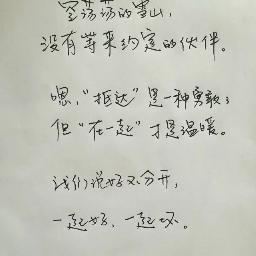 空荡荡的雪山，
没有等来约定的伙伴。
嗯，“抵达”是一种勇敢；
但“在一起”才是温暖。
我们说好不分开，
一起好、一起坏。